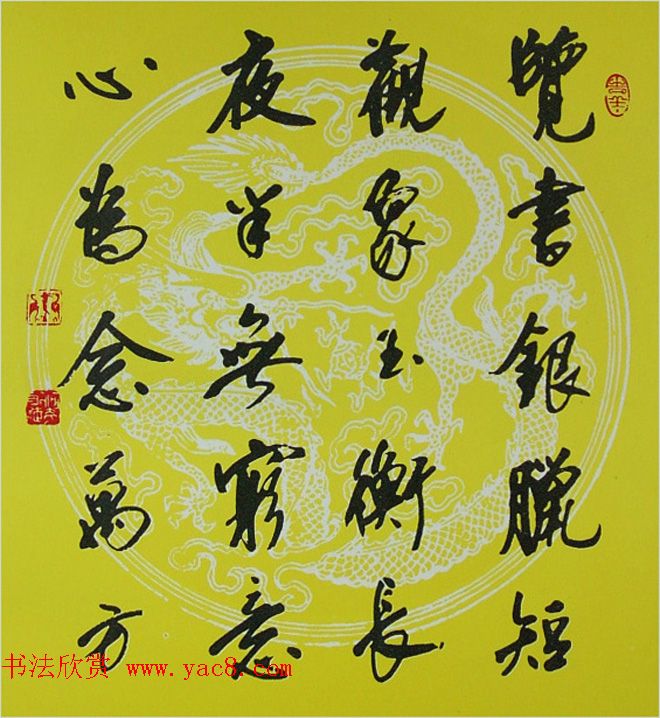 覽書銀臘短
觀象玉衡長
夜半無窮意
心為念萬方
书法欣赏 www.yac8.com